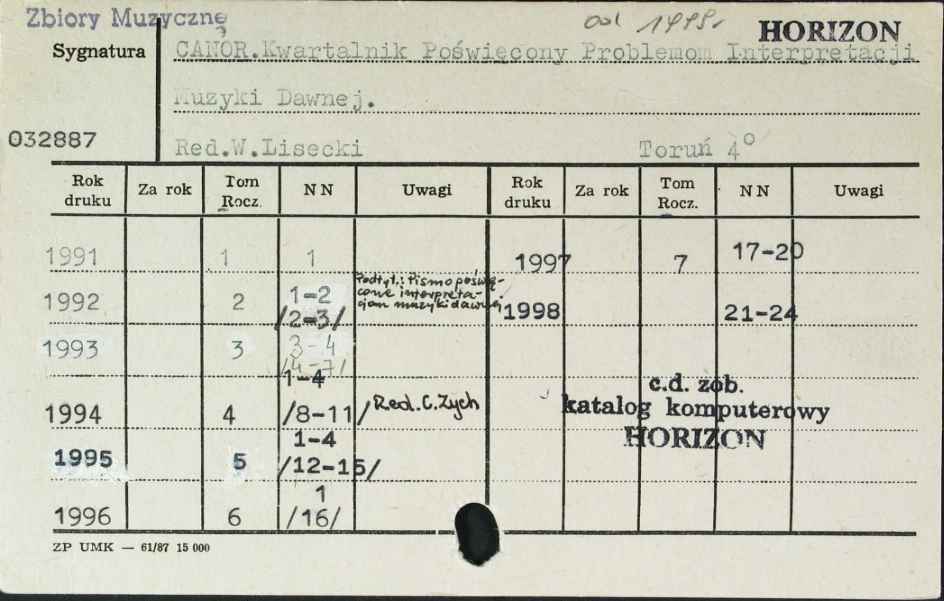 Zbiory Muzyczne
od 1998r.
HORIZON
Sygnatura
CANOR. Kwartalnik Poświęcony Problemom Interpretacji
Muzyki Dawnej.
032887
Red.W.Lisecki Toruń 4°
Rok druku Za rok Tom Rocz. NN Uwagi Rok druku Za rok Tom Rocz. NN Uwagi
1991 1 1 1997 7 17-20
1992 2 1-2 /2-3/ Podtyt.: Pismo poświęcone interpretacjom muzyki dawnej 1998 21-24
1993 3 3-4 /4-7/
1994 4 1-4 /8-11/ Red. C. Zych
c.d. zob.
katalog komputerowy
HORIZON
1995 5 1-4 /12-15/
1996 6 1 /16/
ZP UMK — 61/87 15 000